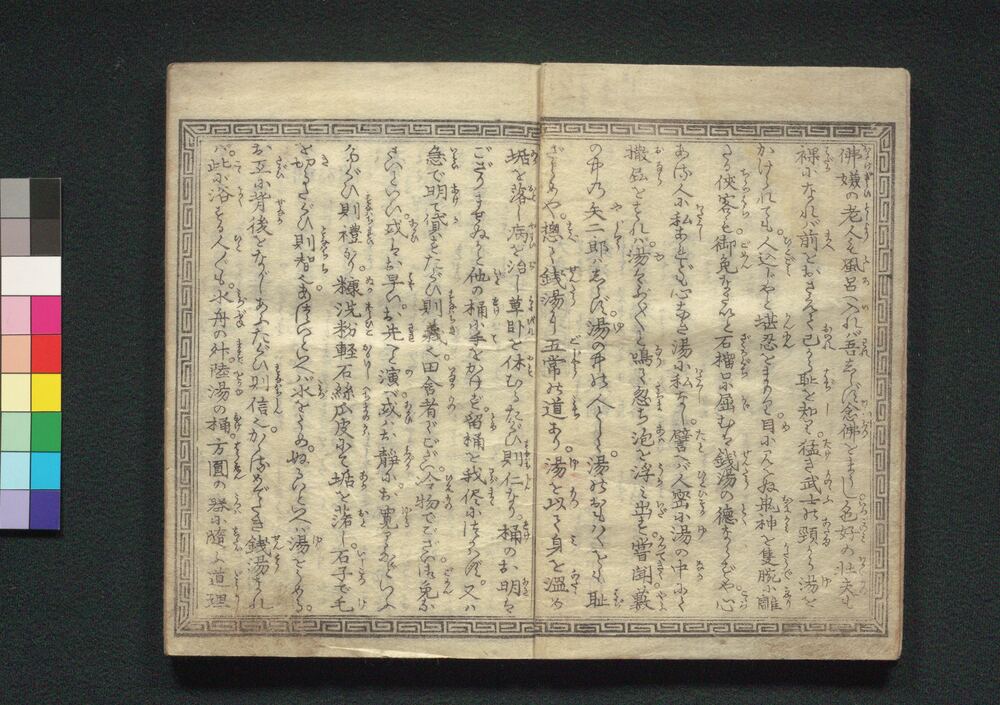 佛嫌の老人も風呂へ入れば吾しらず念佛をまうし色好の壮夫も
裸になれば前をおさえて己から耻を知り猛き武士の頸から湯を
かけられても人込じやと堪忍をまもり目に見えぬ鬼神を隻腕に雕
たる侠客も御免なさいと石榴口に屈むは銭湯の徳ならずや心
ある人に私あれども心なき湯に私なし譬へば人密に湯の中にて
撒屁をすれば湯はぶく/\と鳴て忽ち泡を浮み出す嘗聞薮
の中の矢二郎はしらず湯の中の人として湯のおもはくをも耻
ざらめや惣て銭湯に五常の道あり湯を以て身を温め
垢を落し病を治し草臥を休むるたぐひ則仁なり桶のお明は
ござりませぬかと他の桶に手をかけず留桶を我儘につかはず又は
急で明て貸すたぐひ則義也田舎者でござい冷物でござい御免な
さいといひ或はお早いお先へと演べ或はお静にお寛りなどゝいふ
たぐひ則禮なり糠洗粉軽石糸瓜皮にて垢を落し石子で毛
を切るたぐひ則智なりあついといへば水をうめぬるいといへば湯をうめる
お互に背後をながしあふたぐひ則信也かゝるめでたき銭湯なれ
ば此に浴する人〻も水舟の升陸湯の桶方圓の器に随ふ道理